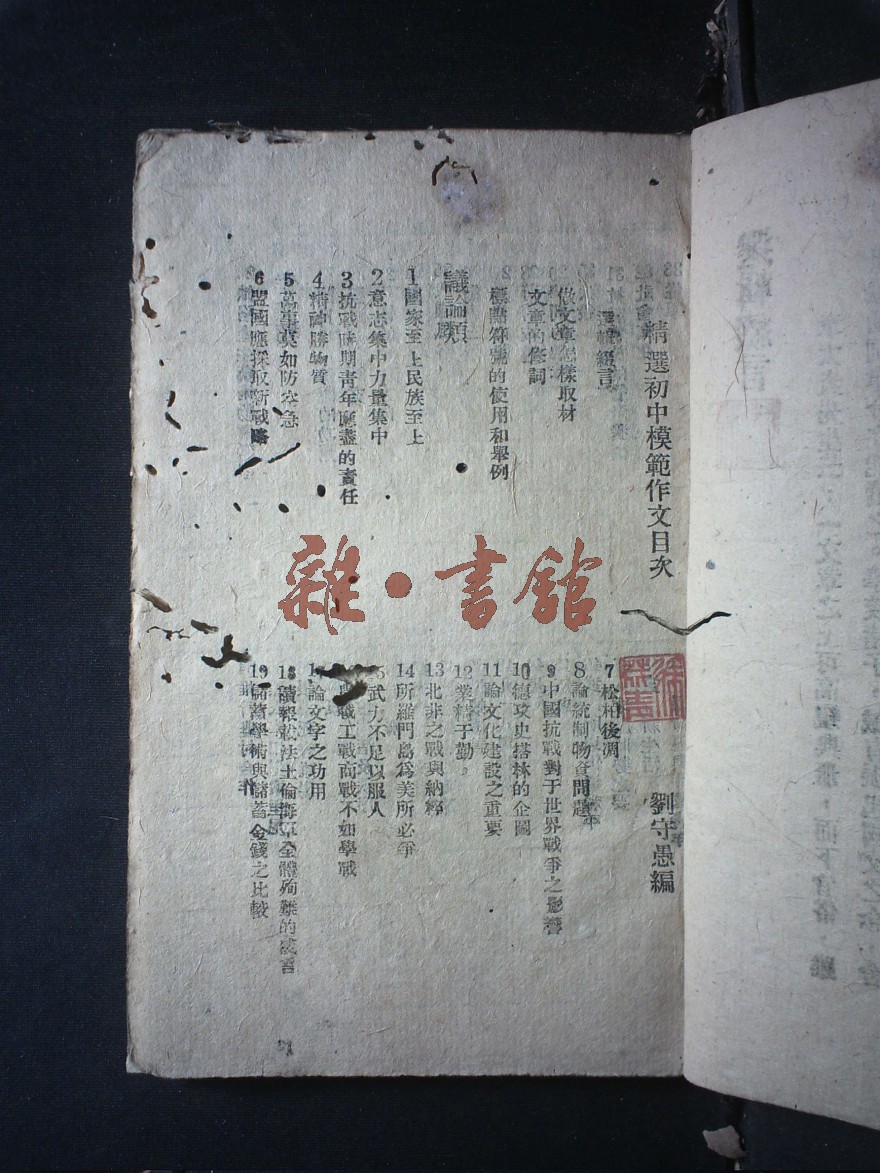 精選初中模範作文目次
劉守愚編
編輯綴言
做文章怎樣取材
文章的修詞
標點符號的使用和舉例
議論類
1國家至上民族至上
2意志集中力量集中
3抗戰時期青年應盡的責任
4精神勝物質
5萬事莫如防空急
6盟國應採取新戰略
7松柏後凋
8論統制物資問題
9中國抗戰對于世界戰爭之影響
10德攻史搭林的企圖
11論文化建設之重要
12業精于勤。
13北非之戰與納粹
14所羅門島爲美所必爭
15武力不足以服人
戰工戰商戰不如學戰
論文字之功用
18讀報載法土倫海軍全體殉難的感言
19儲蓄學術與儲蓄金錢之比較
雜·書館